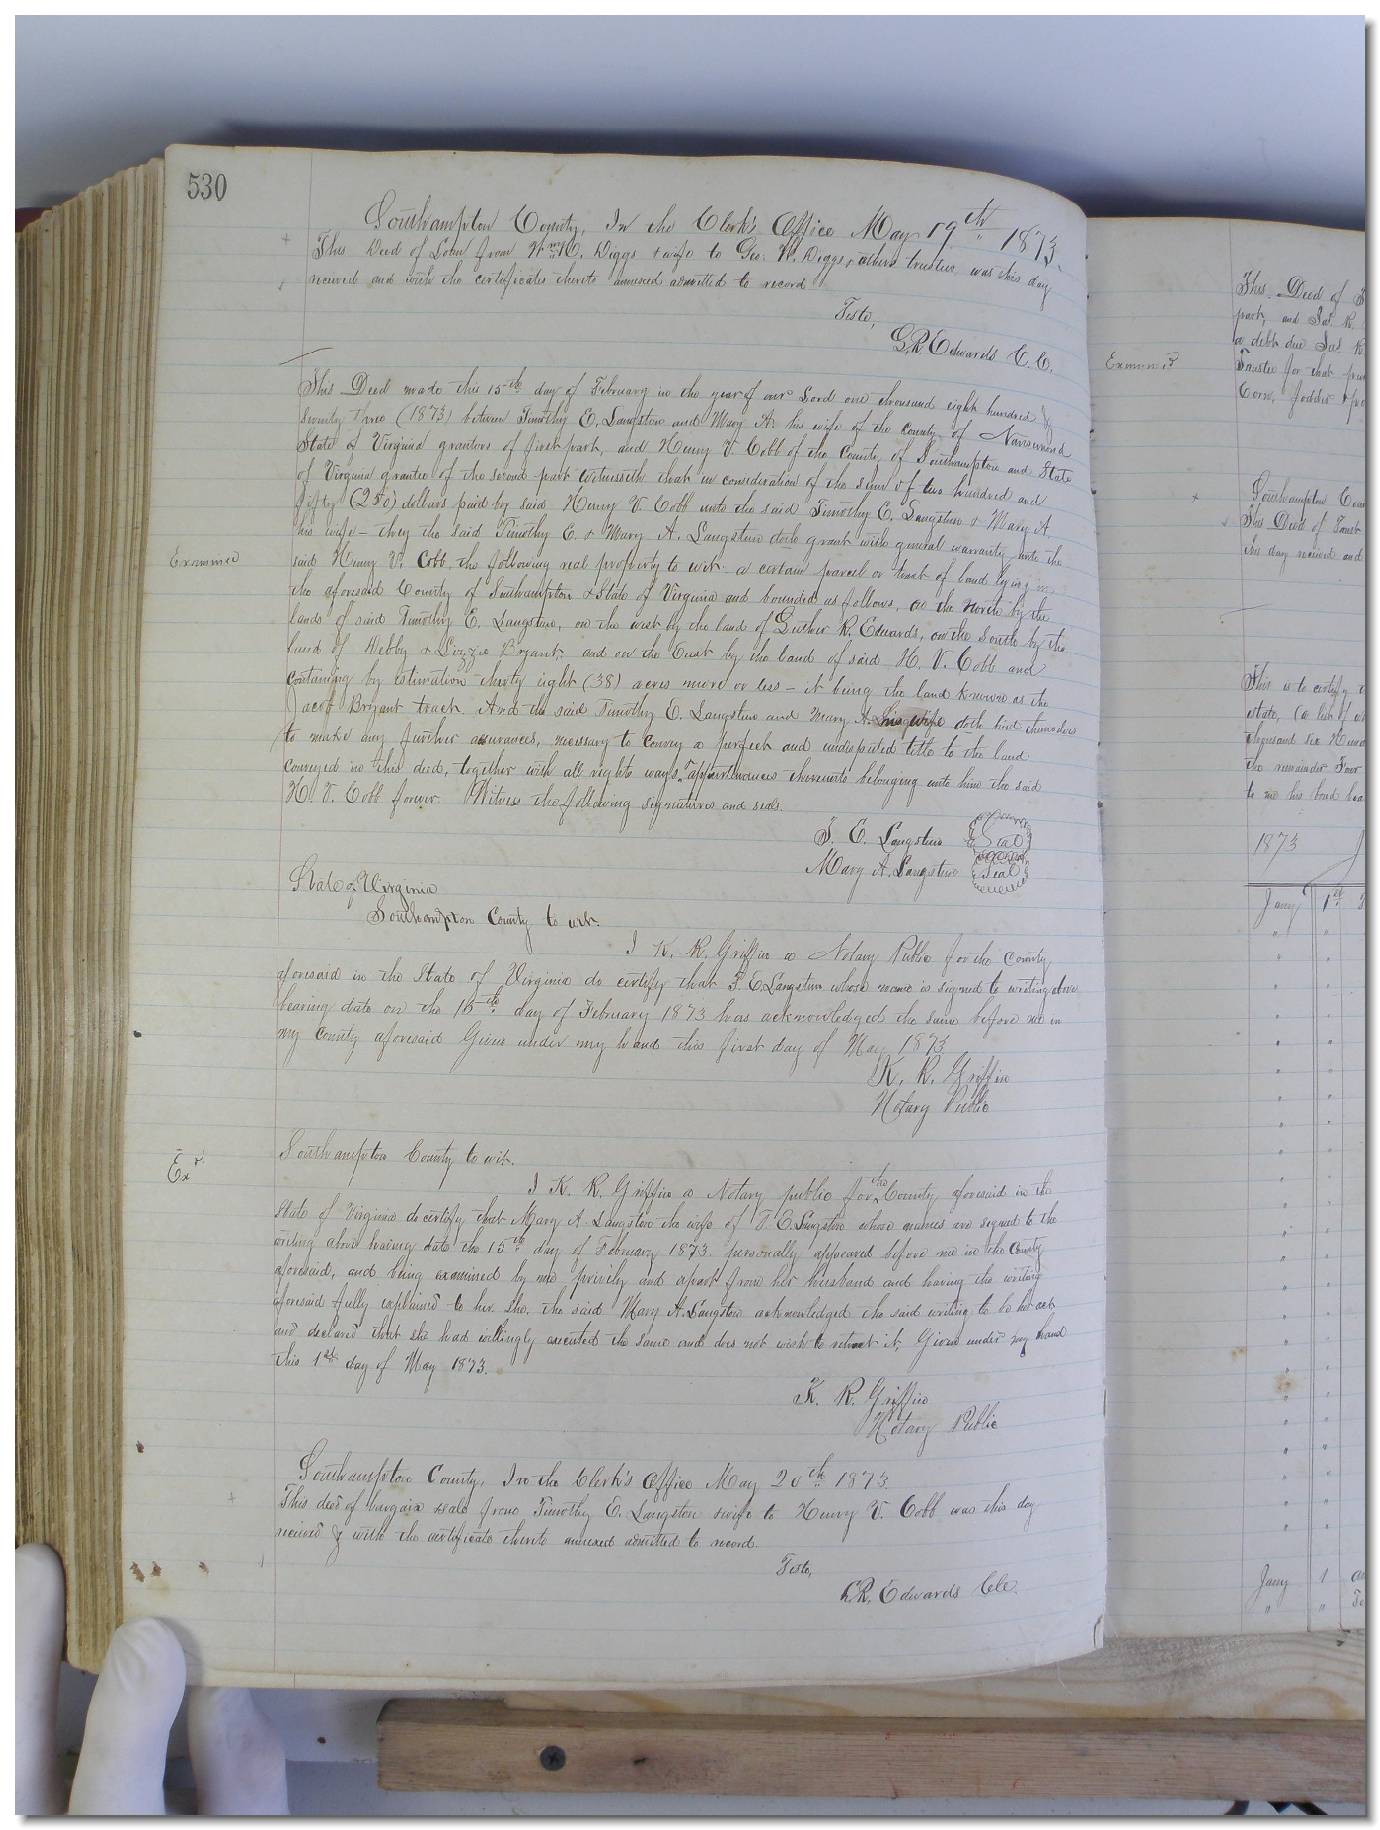 530
Southampton County, In the Clerk's Office May 19th 1873.
This Deed of Loan from Wm H. Diggs & wife to Geo. W. Diggs & others trustees was this day
received and with the certificates thereto annexed admitted to record
Teste,
G.R. Edwards C. C.
This Deed made this 15th day of February in the year of our Lord one thousand eight hundred &
seventy three (1873) between Timothy E. Langston and Mary A. his wife of the County of Nansemond
State of Virginia grantors of first part, and Henry V. Cobb of the County of Southampton and State
of Virginia grantee of the second part Witnesseth that in consideration of the sum of two hundred and
fifty (250) dollars paid by said Henry V. Cobb unto the said Timothy E. Langston & Mary A.
his wife - they the said Timothy E. & Mary A. Langston doth grant with general warranty unto the
Examined
said Henry V. Cobb, the following real property to wit. a certain parcel or tract of land lying in
the aforesaid County of Southampton & State of Virginia and bounded as follows, on the North by the
lands of said Timothy E. Langston, on the west by the land of Luther R. Edwards, on the South by the
land of Webby & Lizzie Bryant, and on the East by the land of said H. V. Cobb and
containing by estimation thirty eight (38) acres more or less - it being the land known as the
Jacob Bryant track. And the said Timothy E. Langston and Mary A. his wife doth bind themselves
to make any further assurances, necessary to convey a perfect and undisputed title to the land
conveyed in this deed, together with all rights ways & appurtenances thereunto belonging unto him the said
H. V. Cobb forever. Witness the following signatures and seals.
T. E. Langston Seal
Mary A. Langston Seal
State of Virginia
Southampton County to wit.
I K. R. Griffin a Notary Public for the County
aforesaid in the State of Virginia do certify that T. E. Langston whose name is signed to writing above
bearing date on the 15th day of February 1873 has acknowledged the same before me in
my County aforesaid Given under my hand this first day of May 1873
K. R. Griffin
Notary Public
Exd
Southampton County to wit.
I K. R. Griffin a Notary public for the County aforesaid in the
State of Virginia do certify that Mary A. Langston the wife of T. E. Langston whose names are signed to the
writing above bearing date the 15th day of February 1873. personally appeared before me in the County
aforesaid, and being examined by me privily and apart from her husband and having the writing
aforesaid fully explained to her. she, the said Mary A. Langston acknowledged the said writing to be her act
and declared that she had willingly executed the same and does not wish to retract it, Given under my hand
this 1st day of May 1873.
K. R. Griffin
Notary Public
Southampton County, In the Clerk's Office May 20th 1873.
This deed of bargain & sale from Timothy E. Langston & wife to Henry V. Cobb was this day
received & with the certificate thereto annexed admitted to record.
Teste,
G.R. Edwards Clk.
This Deed of
part, and Jas. R.
a debt due Jas. R
Examined
Trustee for that
Corn, fodder &
Southampton
This Deed of Trust
this day received and
This is to certify
state, (a
thousand six
the remainder Four
to me his bond
1873
Jany 1st
Jany 1